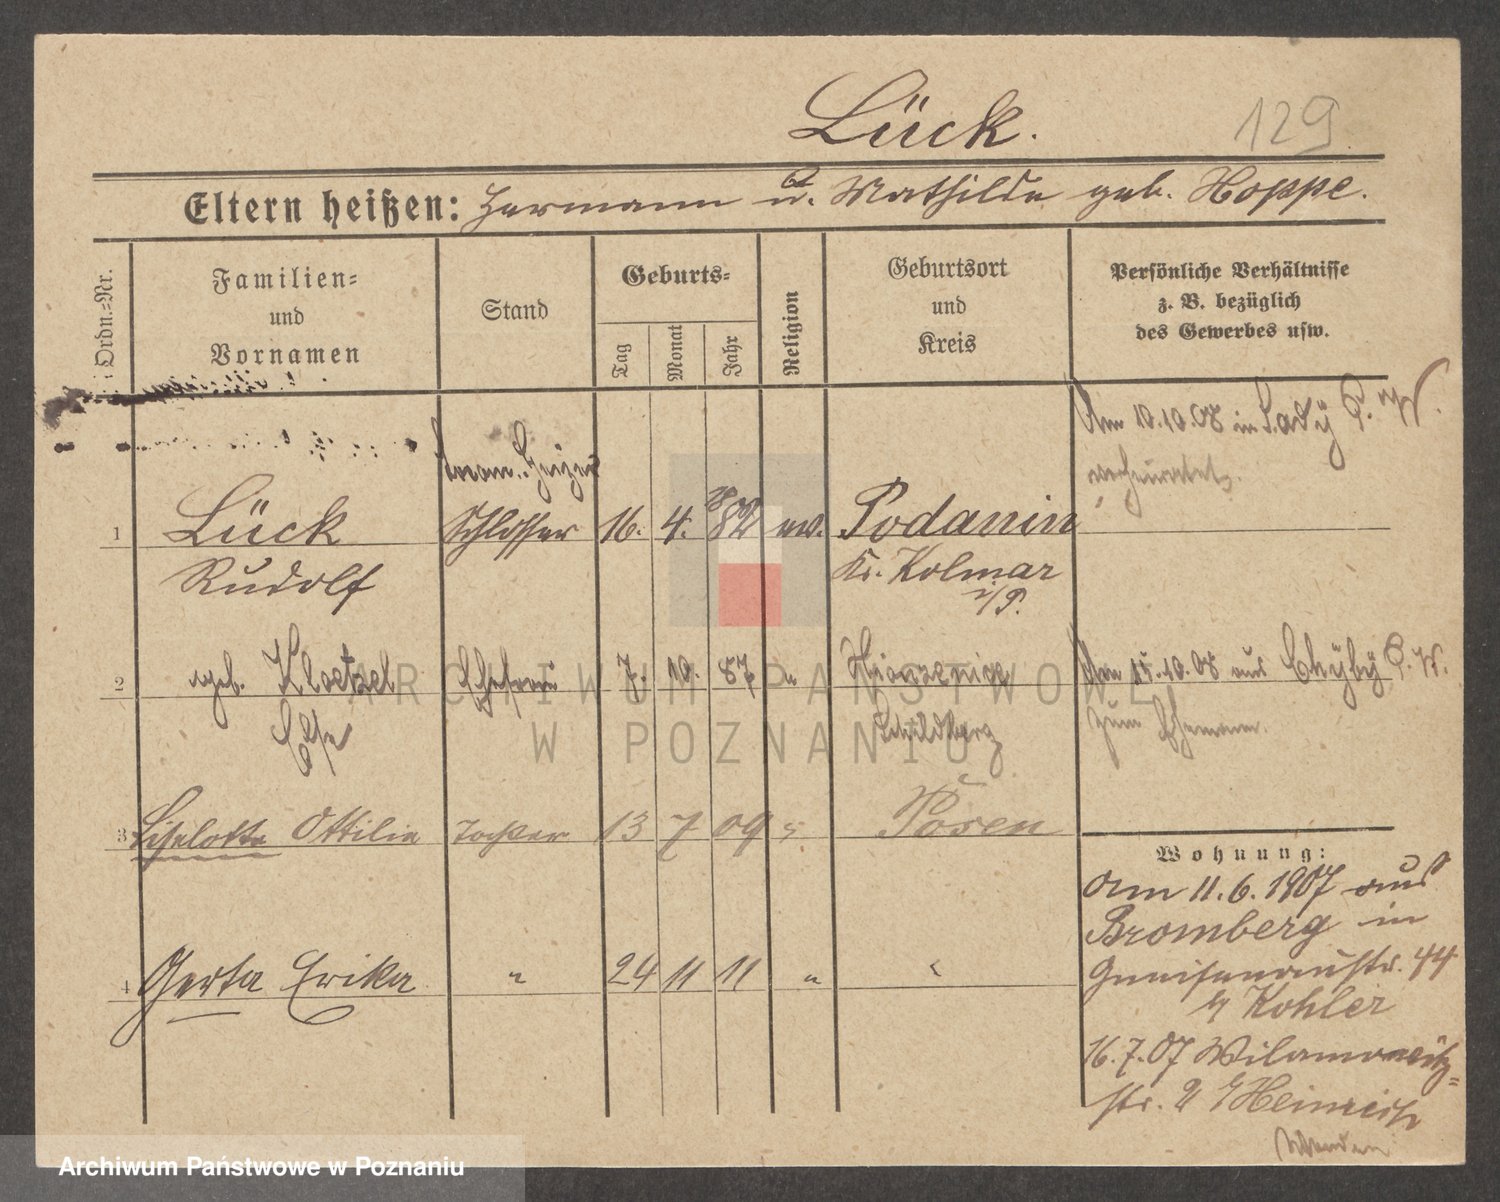 Lück.
129
Eltern heißen: Hermann u. Mathilde geb. Hoppe.
Ordn.=Nr.
Familien=
und
Vornamen
Stand
Geburts=
Tag
Monat
Jahr
Religion
Geburtsort
und
Kreis
Persönliche Verhältnisse
z. B. bezüglich
des Gewerbes usw.
Am 10.10.08 in P.
verheiratet.
Heizer
1 Lück Schlosser 16. 4. 82 ew. Podanin
Rudolf Kr. Kolmar
i/P.
2 geb. Klaetzel Ehefrau 7. 10. 87 "
Else Schildberg
Am 15.10.08 aus
zum Ehemann.
3 Liselotte Ottilie Tochter 13 7 09 " Posen
4 Gerta Erika " 24 11 11 " "
Wohnung:
am 11.6.1907 aus
Bromberg in
Gneisenaustr. 44
b/ Kohler
16.7.07 Wilamowitz=
str. 2 b/ Heinrich
ARCHIWUM PAŃSTWOWE
W POZNANIU
Archiwum Państwowe w Poznaniu